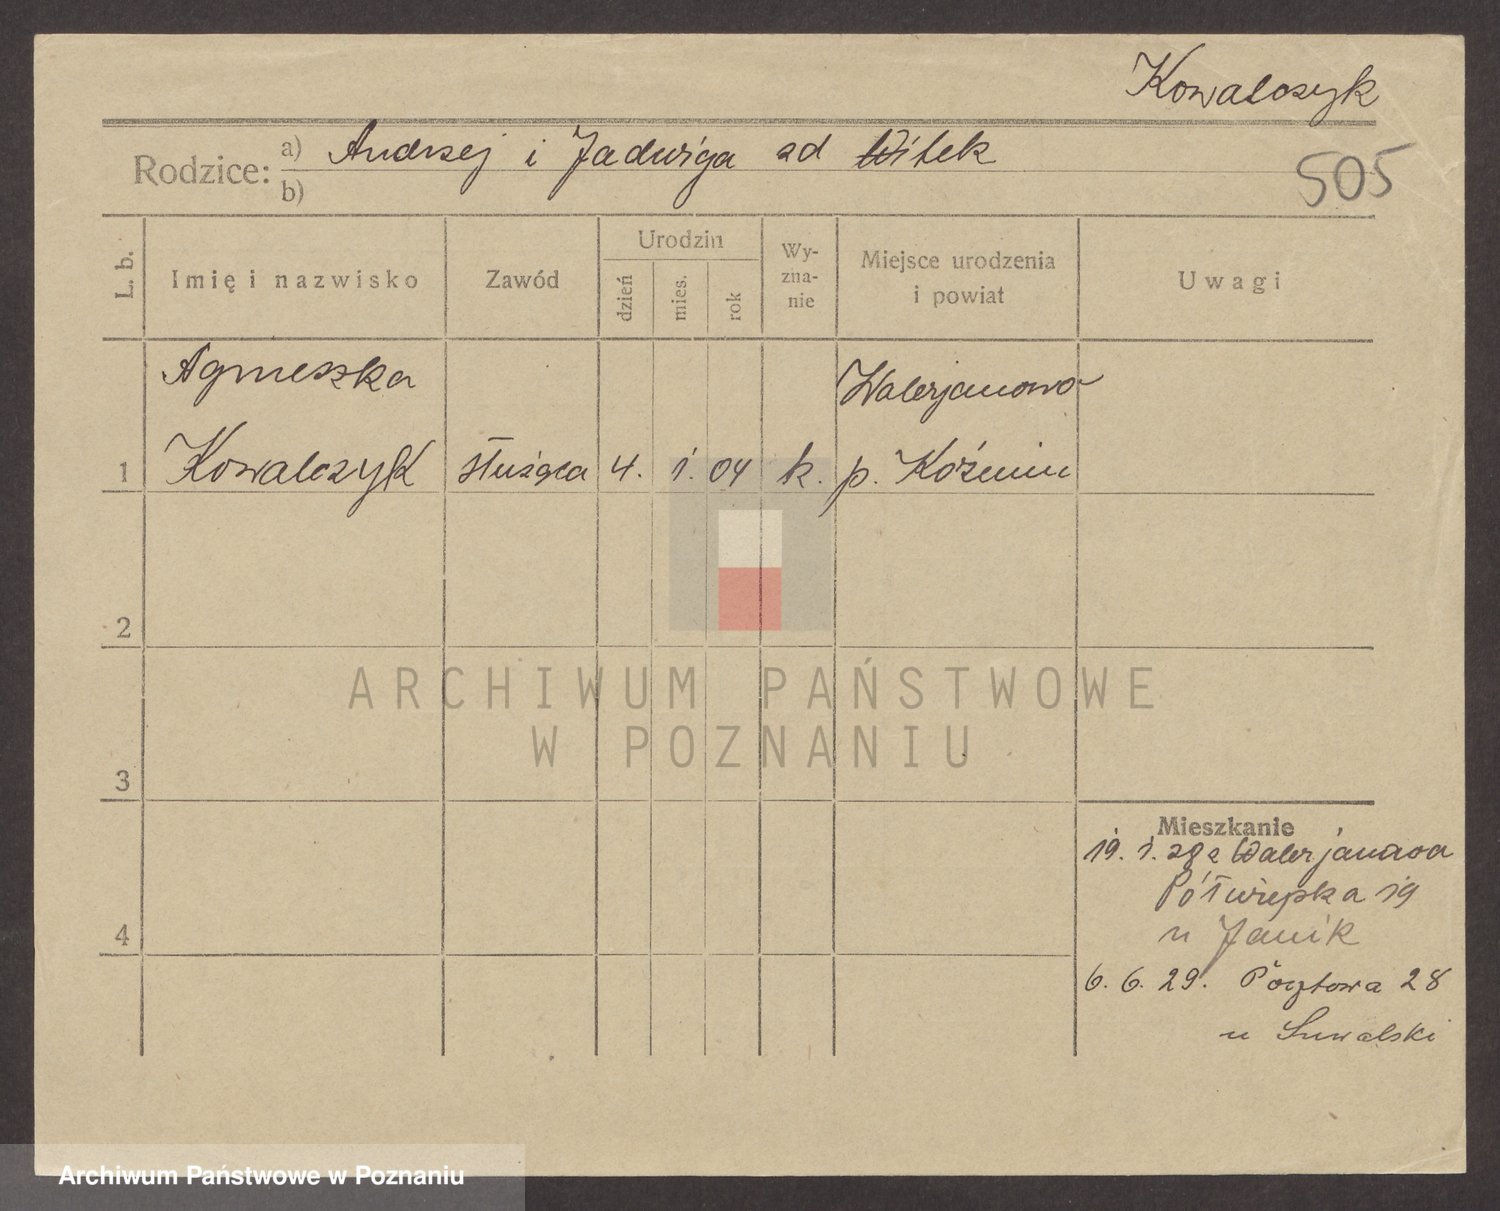 Kowalczyk
Rodzice: a) Andrzej i Jadwiga zd Witek
b)
505
L. b.
Imię i nazwisko
Zawód
Urodzin
dzień
mies.
rok
Wy-
zna-
nie
Miejsce urodzenia
i powiat
Uwagi
Agnieszka Walerjanowo
1 Kowalczyk służąca 4. 1. 04 k. p. Koźmin
2
3
4
Mieszkanie
19. 1. 28 z Walerjanowa
Półwiejska 19
u Janik
6. 6. 29. Pocztowa 28
u Suwalski
ARCHIWUM PAŃSTWOWE
W POZNANIU
Archiwum Państwowe w Poznaniu